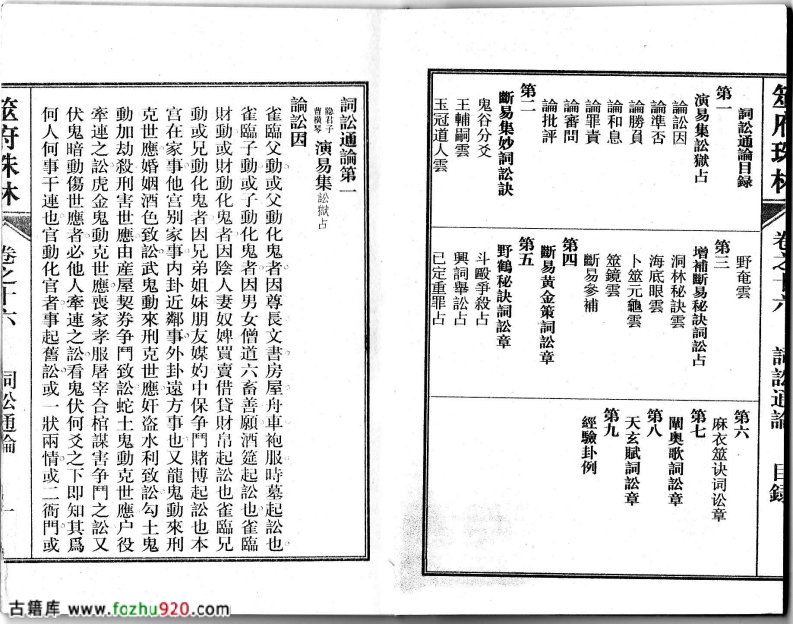 筮府珠林
卷之十六
詞訟通論
目録
詞訟通論目録
第一
演易集訟獄占
論訟因
論準否
論勝負
論和息
論罪責
論審問
論批評
第二
斷易集妙詞訟訣
鬼谷分爻
王輔嗣雲
玉冠道人雲
野奄雲
第三
增補斷易秘訣詞訟占
洞林秘訣雲
海底眼雲
卜筮元龜雲
筮鏡雲
斷易參補
第四
斷易黃金策詞訟章
第五
野鶴秘訣詞訟章
斗毆爭殺占
興詞舉訟占
已定重罪占
第六
麻衣筮诀词讼章
第七
闡奥歌詞訟章
第八
天玄賦詞訟章
第九
經驗卦例
詞訟通論第一
隐君子
曹横琴
演易集訟獄占
論訟因
雀臨父動或父動化鬼者因尊長文書房屋舟車袍服時墓起訟也
雀臨子動或子動化鬼者因男女僧道六畜善願酒筵起訟也雀臨
財動或財動化鬼者因陰人妻奴婢買賣借貸財帛起訟也雀臨兄
動或兄動化鬼者因兄弟姐妹朋友媒妁中保争鬥賭博起訟也本
宫在家事他宫别家事内卦近鄰事外卦遠方事也又龍鬼動來刑
克世應婚姻酒色致訟武鬼動來刑克世應奸盗水利致訟勾土鬼
動加劫殺刑害世應由産屋契券争鬥致訟蛇土鬼動克世應户役
牽連之訟虎金鬼動克世應喪家孝服屠宰合棺謀害争鬥之訟又
伏鬼暗動傷世應者必他人牽連之訟看鬼伏何爻之下即知其爲
何人何事干連也官動化官者事起舊訟或一狀兩情或二衙門或
筮府珠林
卷之十六
詞訟通論
一
古籍库 www.fozhu920.com